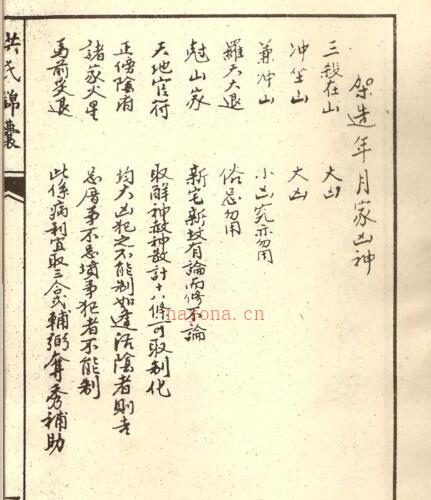 架造年月家凶神
三殺在山 大凶
冲坐山 大凶
兼冲山 小凶究亦勿用
羅天大退 俗忌勿用
尅山家 新宅新坟有論而修不論
天地官符 取解神赦神散計十八條可取制化
正傍陰府 均大凶犯之不能制如逢活陰者則吉
諸家火星 忌厝事不忌墳事犯者不能制
馬前炙退 此係病利宜取三合式輔弼奪秀補助
洪氏錦囊